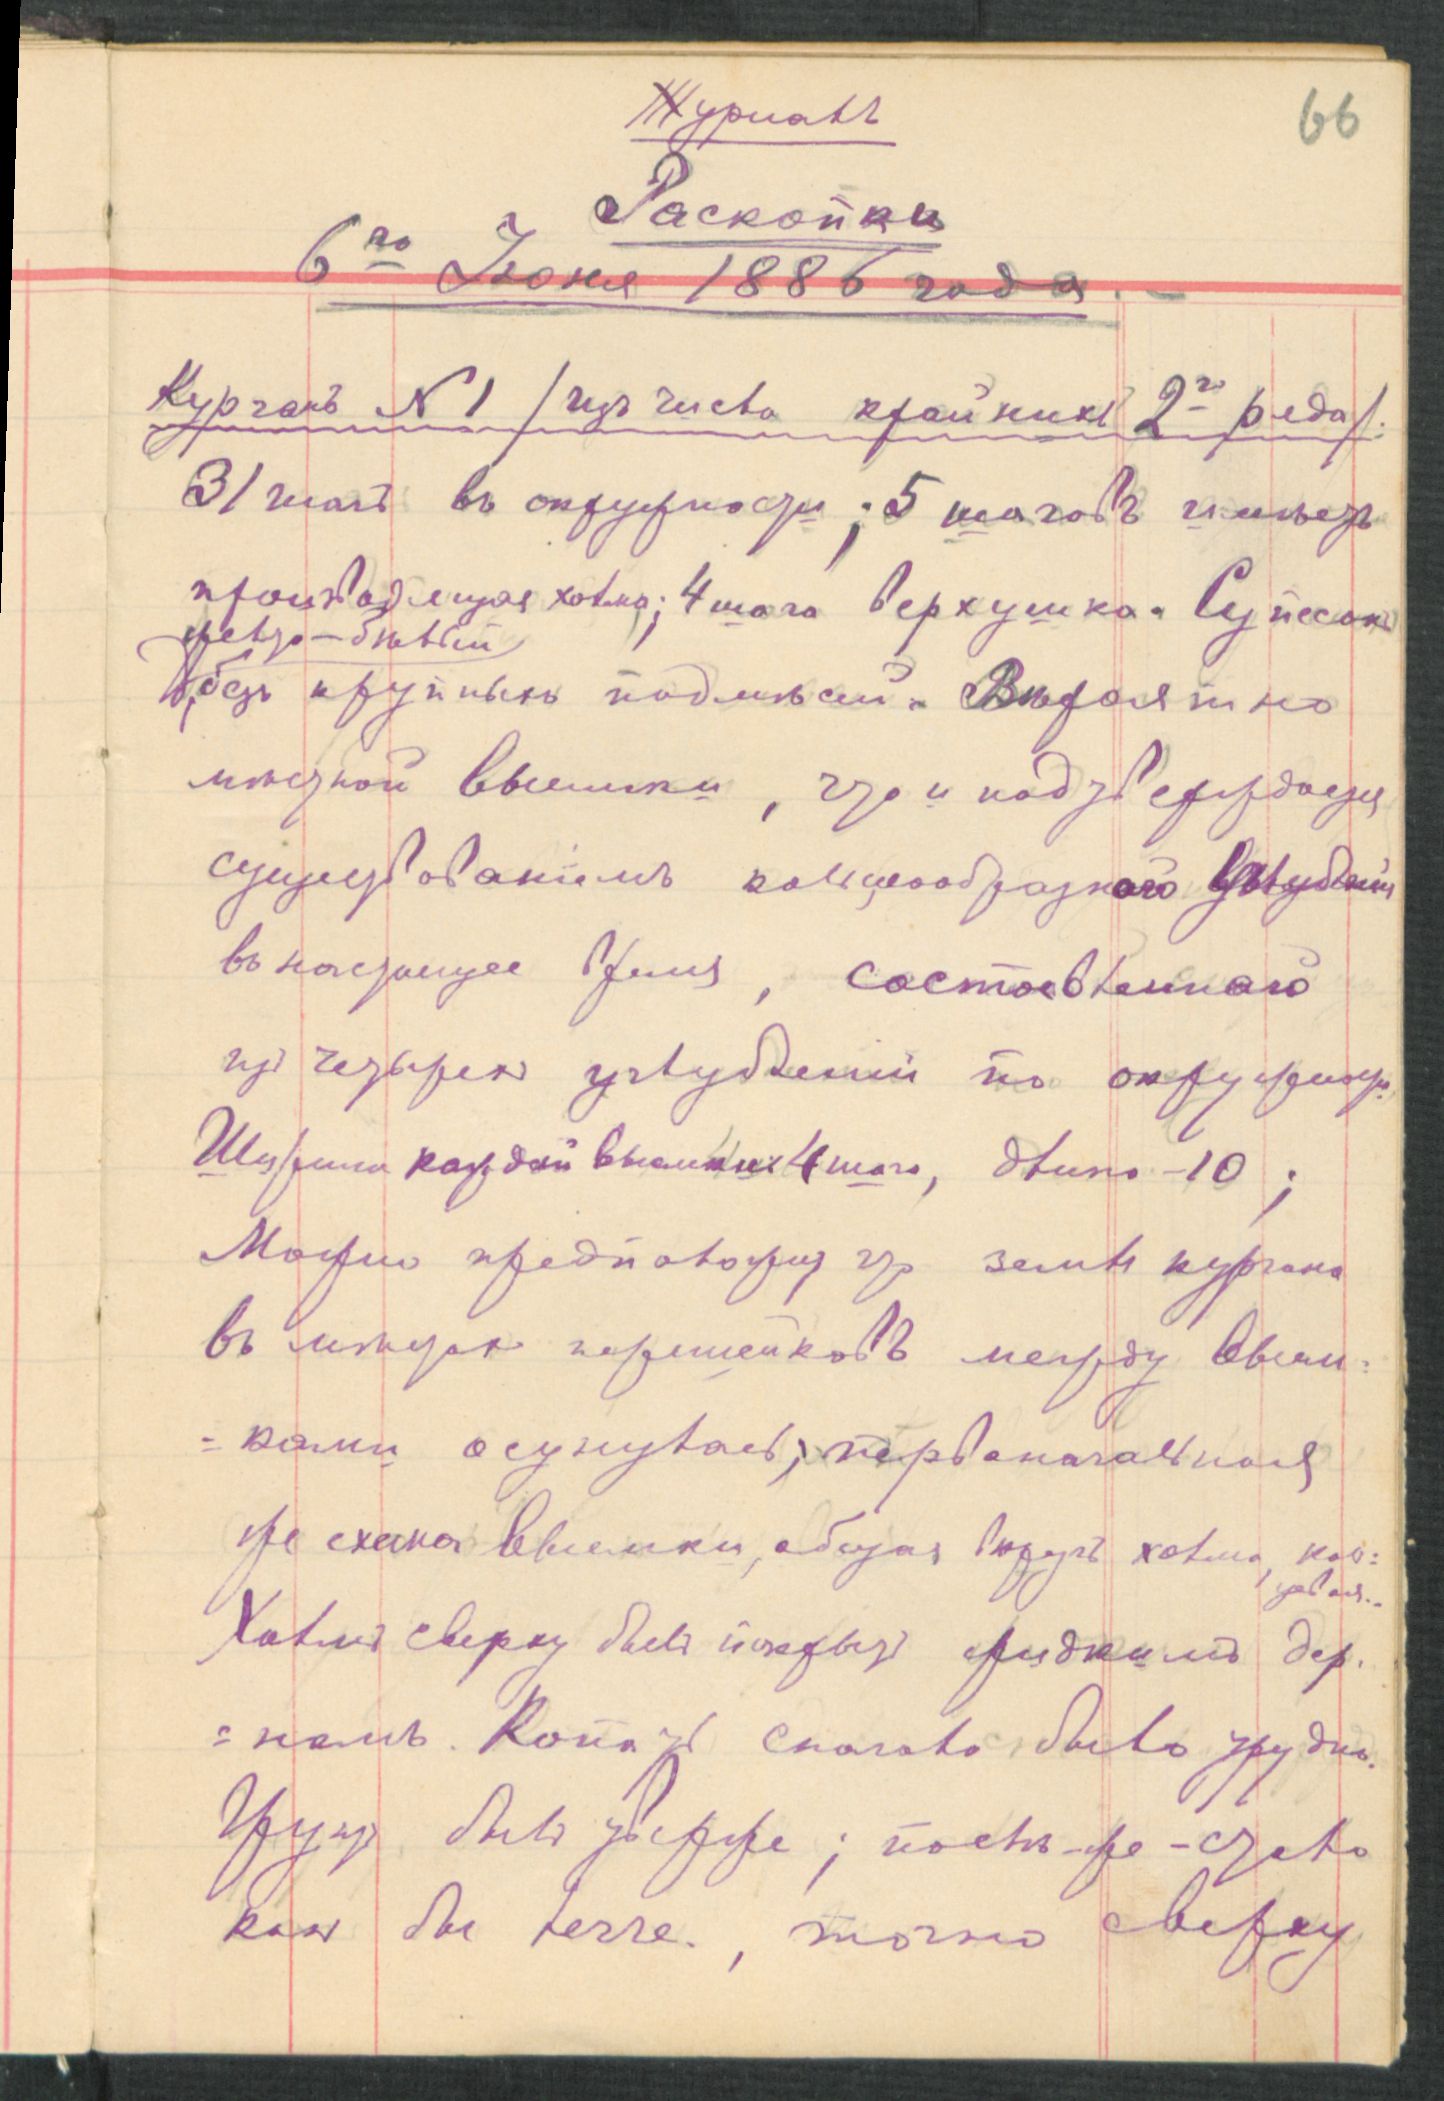 Журналъ
66
Раскопки
6го Іюня 1886 года. –
Курганъ N 1 /изъ числа крайнихъ 2го ряда/.
31 шагъ въ окружности; 5 шаговъ имѣетъ
производящая холма; 4 шага верхушка. Супесокъ
желто-бѣлый
, безъ крупныхъ подмѣсей. Вѣроятно
мѣстной выемки, что и подтверждается
существованіемъ кольцеобразнаго углубленія
въ настоящее время, составленнаго
изъ четырехъ углубленій по окружности.
Ширина каждой выемки 4 шага, длина – 10;
Можно предположить что земля кургана
въ мѣстахъ перешейковъ между выем=
=ками осунулась; первоначальная
же схема выемки, общая вкругъ холма, коль=
цевая..
Холмъ сверху былъ покрытъ рѣдкимъ дер.
=номъ. Копать сначала было трудно.
Грунтъ былъ тверже; послѣ-же – стало
какъ бы легче., точно сверху